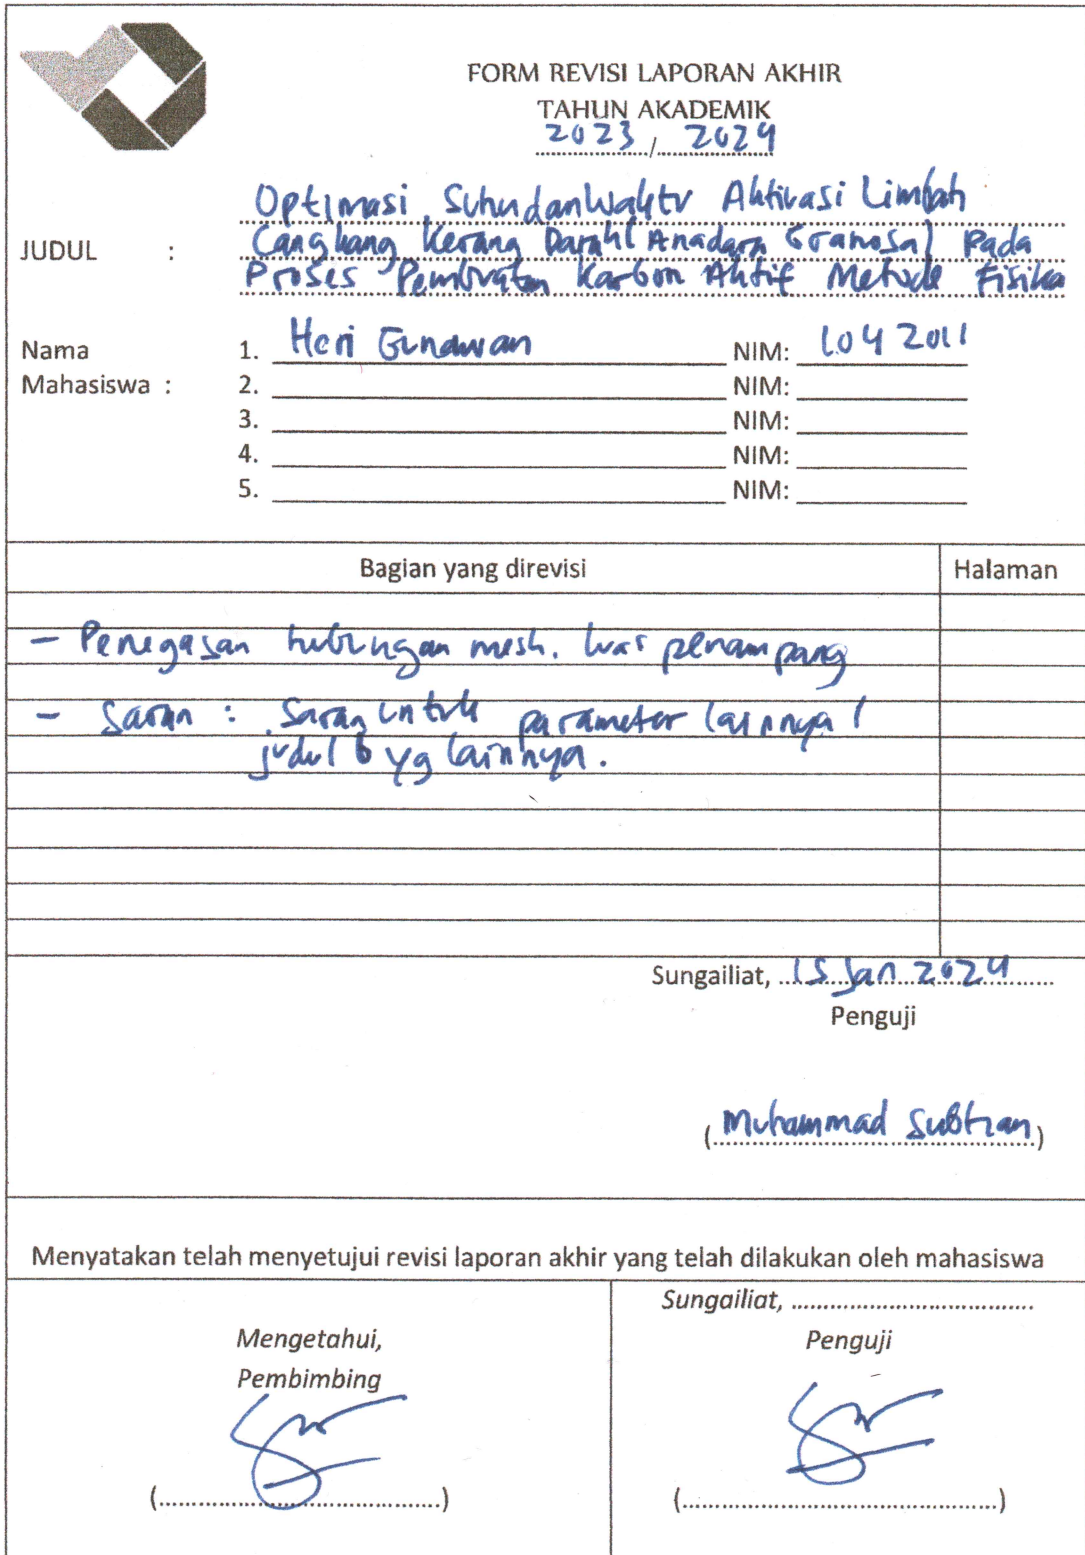 FORM REVISI LAPORAN AKHIR
TAHUN AKADEMIK
2023 / 2024
JUDUL : Optimasi Suhu dan Waktu Aktivasi Limbah
Cangkang Kerang Darah (Anadara Granosa) Pada
Proses Pembuatan Karbon Aktif Metode Fisika
Nama
Mahasiswa :
1. Heri Gunawan NIM: 1042011
2. NIM:
3. NIM:
4. NIM:
5. NIM:
Bagian yang direvisi Halaman
- Penegasan hubungan mesh. luas penampang
- Saran : Saran untuk parameter lainnya /
judul yg lainnya.
Sungailiat, 15 Jan 2024
Penguji
(Muhammad Subhan)
Menyatakan telah menyetujui revisi laporan akhir yang telah dilakukan oleh mahasiswa
Sungailiat, ....................................
Mengetahui, Penguji
Pembimbing
(..........................................) (..............................................)